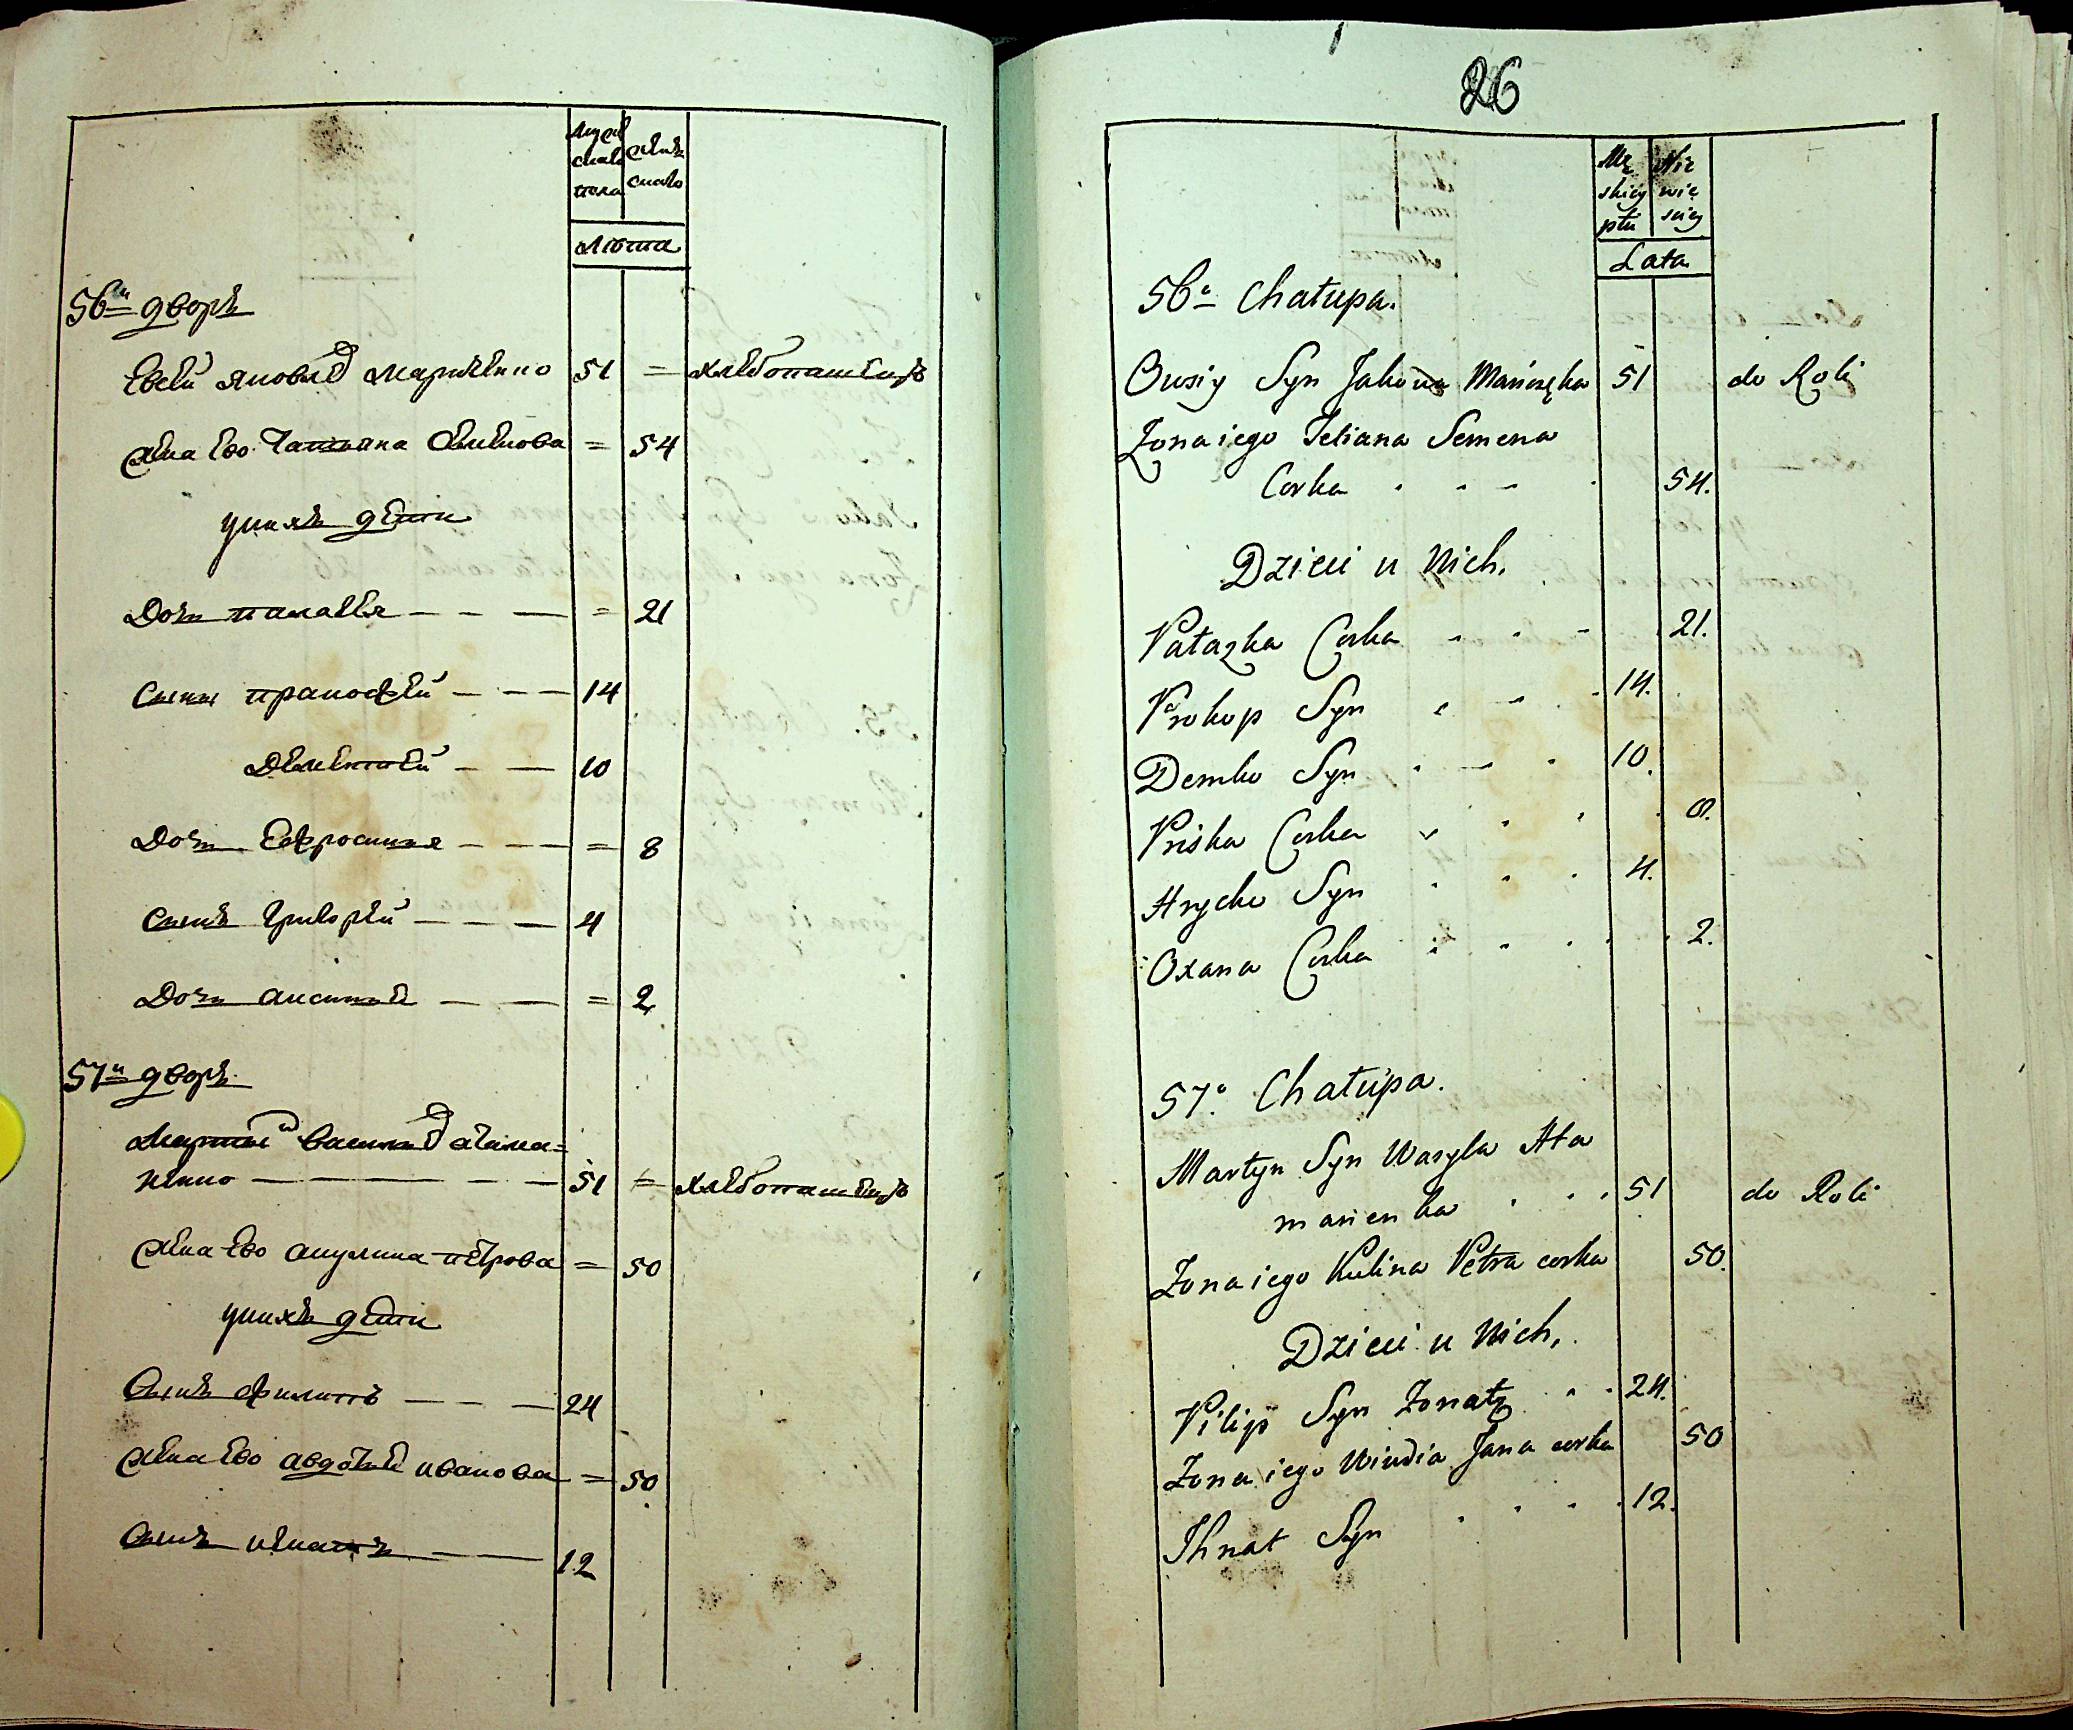 Муж
скаго
пола
женс
скаго
лѣта
56й дворъ
Евсей Яковлевъ Марченко 51 = хлѣбопашецъ
жена Ево Татьяна Семенова = 54
у них дети
Дочь Палагѣя - - - = 21
Сыны Пракофей - - - 14
Деменътей - - 10
Дочь Ефросиния - - - = 8
Сынъ Григорей - - - 4
Дочь Аксиния - - = 2
57й дворъ
Мартин Василев Атама=
ненко - - - - - 51 = хлѣбопашецъ
жена Ево Акулина Петрова = 50
у нихъ дети
Сынъ Филипъ - - - 24
жена Ево Авдотья Иванова = 50
Сынъ Игнатъ - - 12
26
Mę
skiey
płci
Nie
wie
sciey
Lata
56a Chałupa.
Ousiy Syn Jakowa 51 do Roli
Zona iego Tetiana Semena
Corka . - - . 54.
Dzieci u Nich.
Pałazka Corka - - - 21.
Prokop Syn - - - 14.
Demko Syn . - . 10.
Priska Corka . . . 8.
Hrycko Syn . . . 4.
Oxana Corka . . . 2.
57a Chałupa.
Martyn Syn Wasyla Ata
manienka . . . 51 do Roli
Zona iego Kulina Petra corka 50.
Dzieci u Nich.
Pilip Syn Zonaty . . 24.
Zona iego Jana corka 50
Ihnat Syn . . . 12.